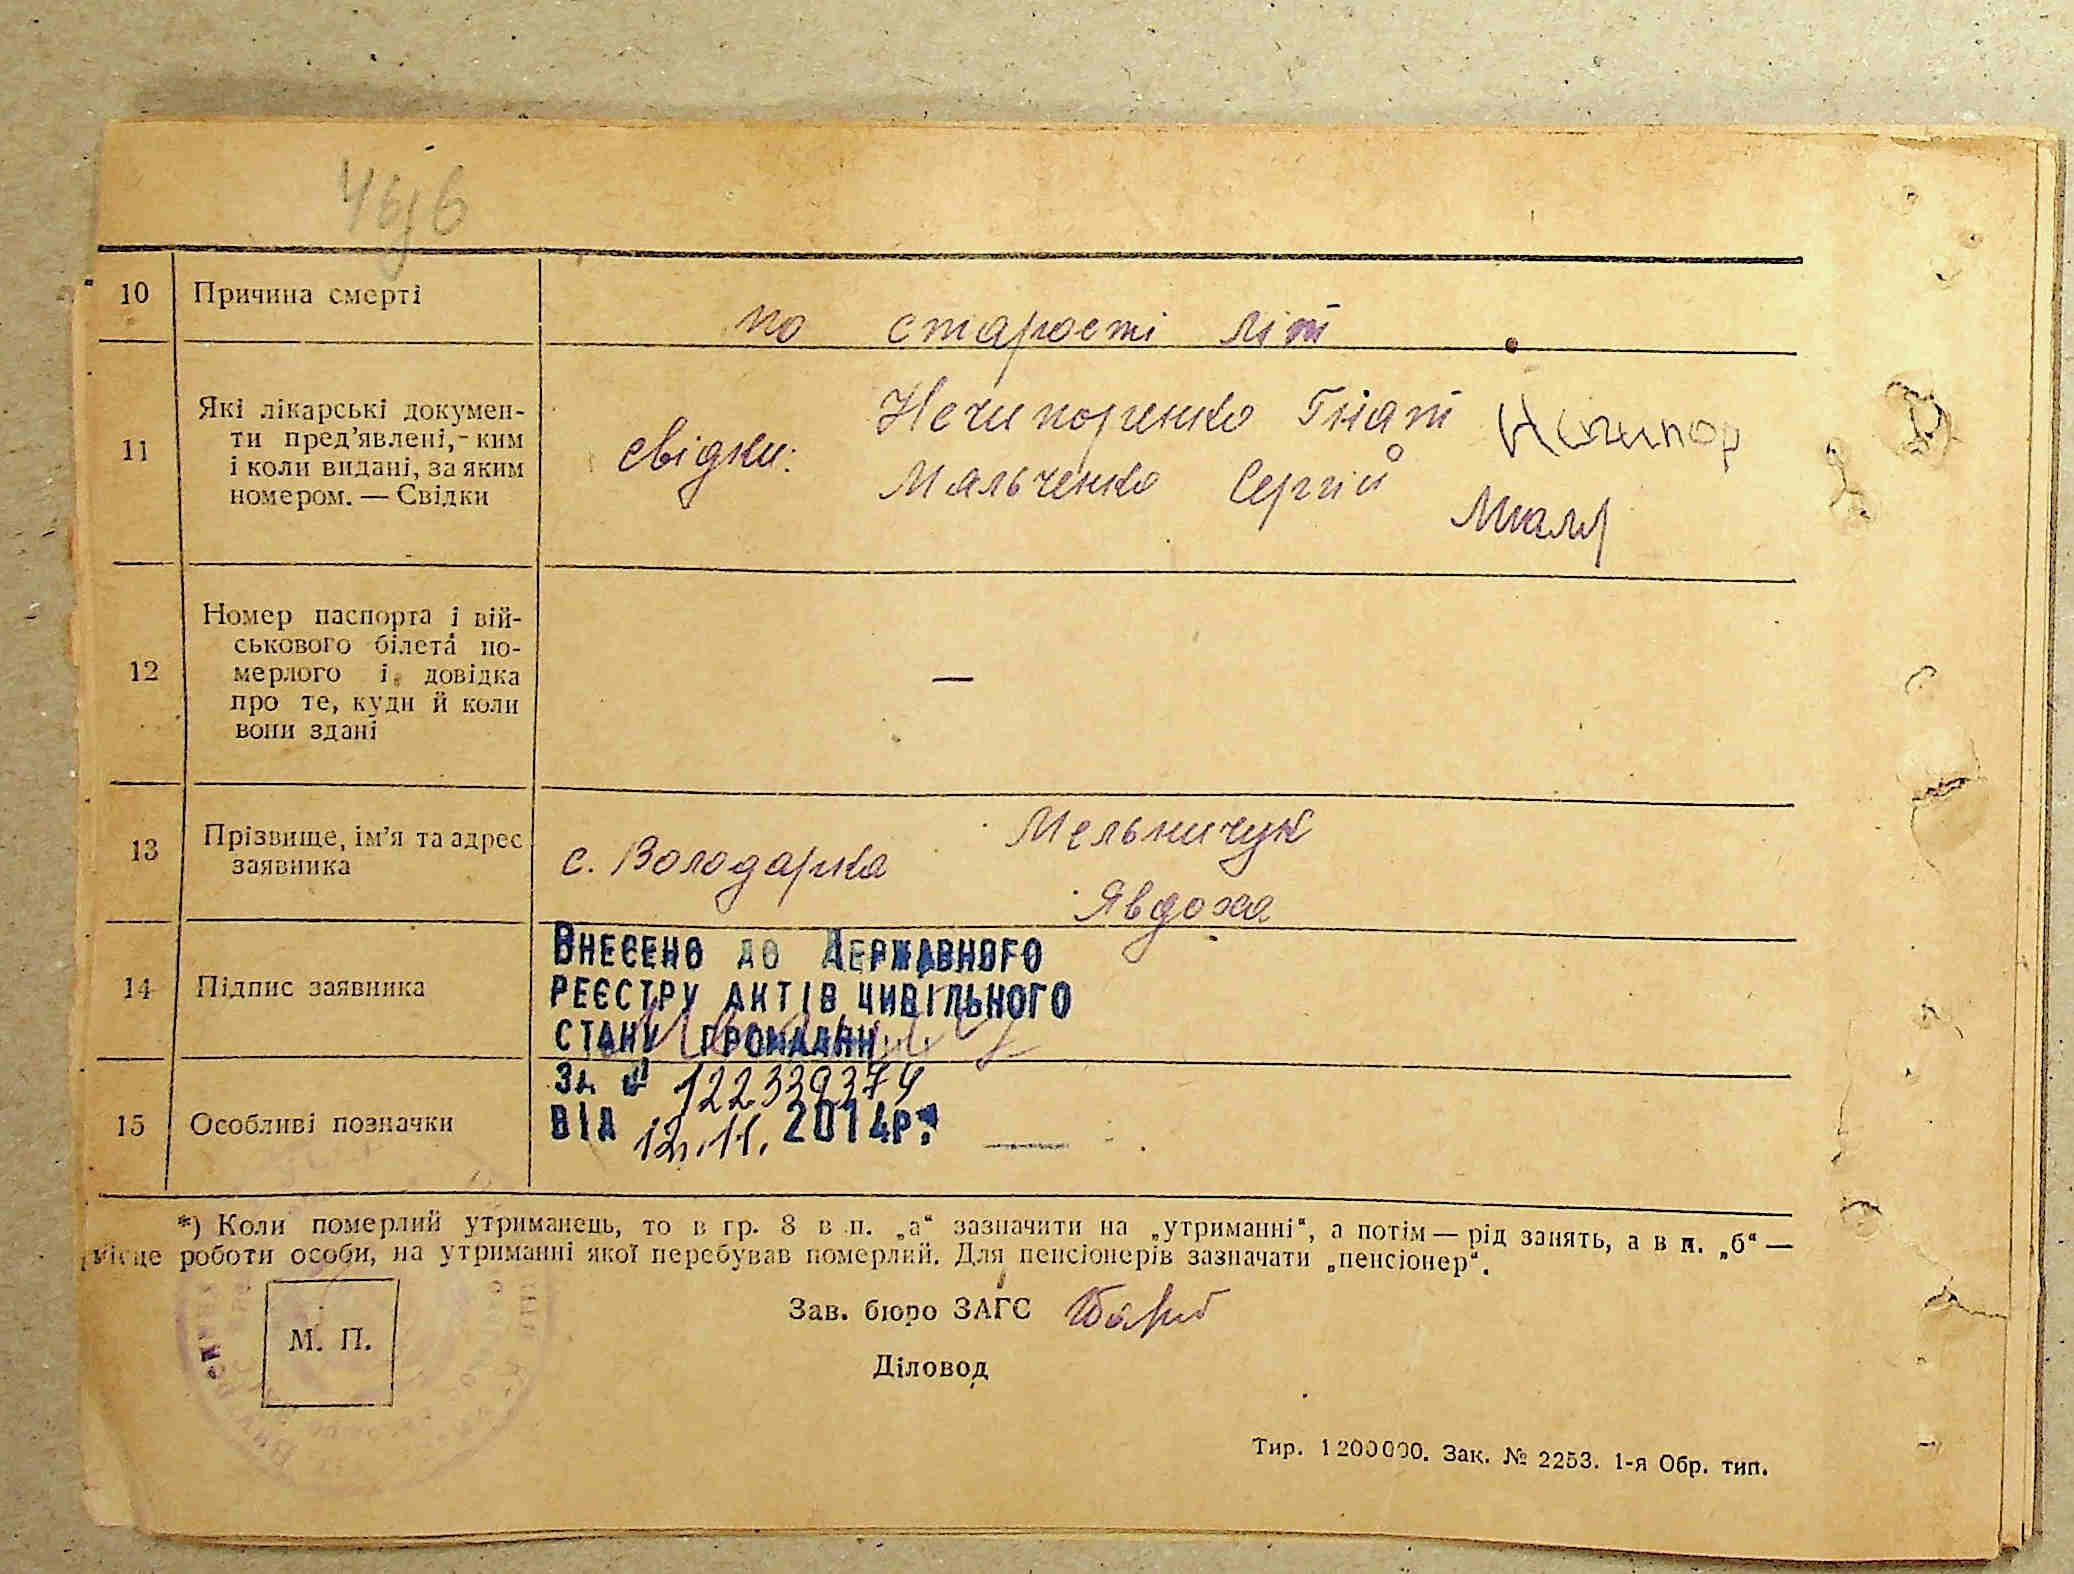 10 Причина смерті по старості літ
11 Які лікарські докумен-
ти пред’явлені, ким
і коли видані, за яким
номером. — Свідки
свідки: Нечипоренко Гнат
Мальченко Сергій
12 Номер паспорта і вій-
ськового білета по-
мерлого і довідка
про те, куди й коли
вони здані —
13 Прізвище, ім’я та адрес
заявника
с. Володарка Мельничук
Явдоха
14 Підпис заявника
Внесено до Державного
реєстру актів цивільного
стану громадян
за № 12.11. 2014р.
15 Особливі позначки
*) Коли померлий утриманець, то в гр. 8 в п. „а“ зазначити на „утриманні“, а потім — рід занять, а в п. „б“ —
місце роботи особи, на утриманні якої перебував померлий. Для пенсіонерів зазначати „пенсіонер“.
М. П.
Зав. бюро ЗАГС
Діловод
Тир. 1200000. Зак. № 2253. 1-я Обр. тип.